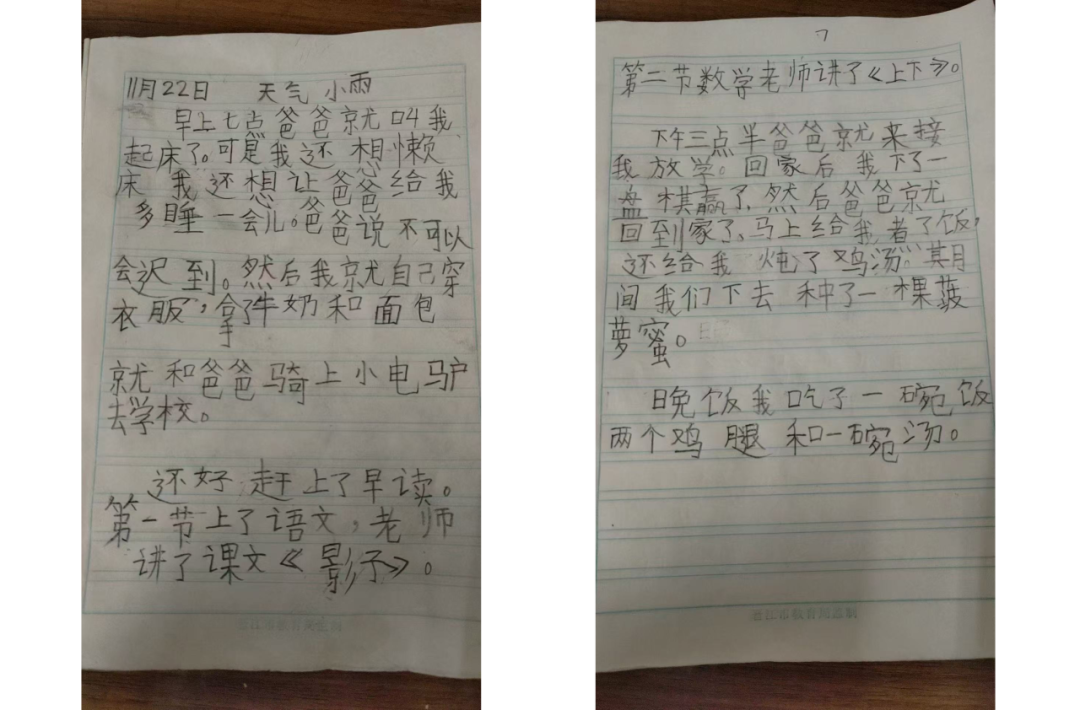 11月22日 天气 小雨
早上七点爸爸就叫我
起床了。可是我还想懒
床 我还想让爸爸给我
多睡一会儿。爸爸说不可以
会迟到。然后我就自己穿
衣服，拿了牛奶和面包
就和爸爸骑上小电驴
去学校。
还好赶上了早读。
第一节上了语文，老师
讲了课文《影子》。
第二节数学老师讲了《上下》。
下午三点半爸爸就来接
我放学。回家后我下了一
盘棋赢了，然后爸爸就
回到家了、马上给我煮了饭，
还给我了炖了鸡汤。其月
间我们下去种了一棵菠
萝蜜。
晚饭我吃了一碗饭
两个鸡腿和一碗汤。